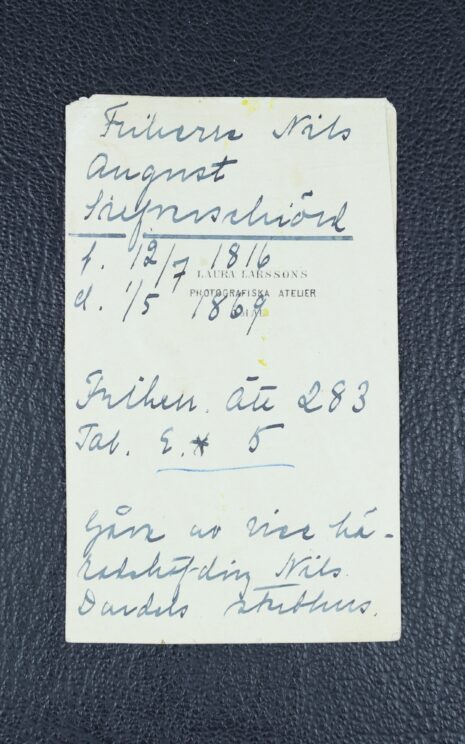 Friherre Nils
August
Stiernschiöld
f. 12/7 1816
LAURA LARSSONS
PHOTOGRAFISKA ATELIER
d. 1/5 1869
Friherr. ätt 283
Tab. 5
Gåva av vice hä-
radshöfding Nils
Dardels sterbhus.